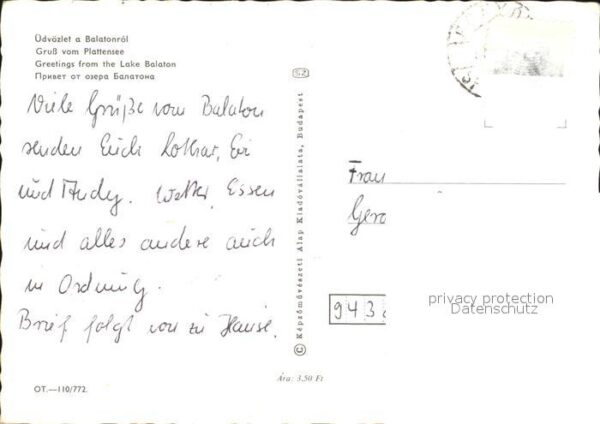 Üdvözlet a Balatonról
Gruß vom Plattensee
Greetings from the Lake Balaton
Привет от озера Балатона
Viele Grüße vom Balaton
senden Euch Lothar,
und Andy. Wetter, Essen
und alles andere auch
in Ordnung.
Brief folgt von zu Hause.
OT.—110/772.
SZ
© Képzőművészeti Alap Kiadóvállalata, Budapest
Ára: 3,50 Ft
Frau
943
privacy protection
Datenschutz